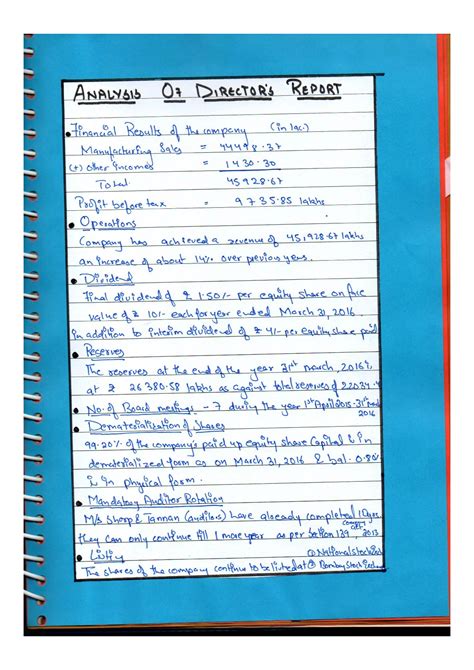 ANALYSIS OF DIRECTOR'S REPORT
• Financial Results of the company (in lac.)
Manufacturing Sales = 44498.37
(+) Other Incomes = 1430.30
Total 45928.67
Profit before tax = 9735.85 lakhs
• Operations
Company has achieved a revenue of 45,928.67 lakhs
an increase of about 14% over previous year.
• Dividend
Final dividend of ₹ 1.50/- per equity share on face
value of ₹ 10/- each for year ended March 31, 2016
in addition to interim dividend of ₹ 4/- per equity share paid
• Reserves
The reserves at the end of the year 31st march, 2016 is
at ₹ 26380.58 lakhs as against total reserves of 22034.4
• No. of Board meetings - 7 during the year 1st April 2015 - 31st
2016
• Dematerialisation of Shares
99.20% of the company's paid up equity share Capital is in
dematerialized form as on March 31, 2016 & bal. 0.80%
is in physical form.
• Mandatory Auditor Rotation
M/s Sharp & Tannan (auditors) have already completed 10 yrs
they can only continue till 1 more year as per section 139, 2013
• Listing
The shares of the company continue to be listed at ① Bombay Stock
② National Stock